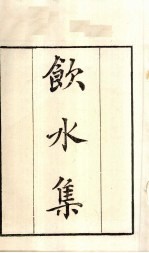 飲水集